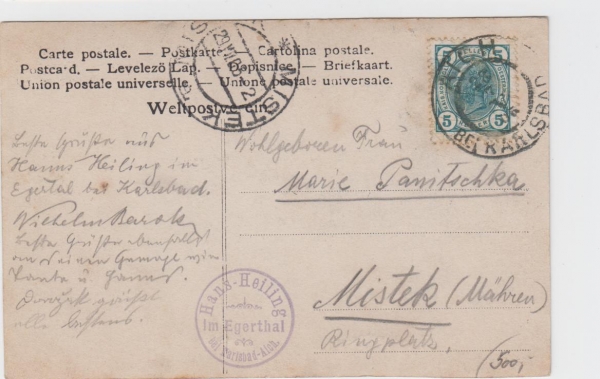 Carte postale. — Postkarte. — Cartolina postale.
Postcard. — Levelező Lap. — Dopisnice — Briefkaart.
Union postale universelle. Unione postale universale.
Weltpostverein.
MISTEK
KARLSBAD
5 5
Beste Grüße aus
Hanns Heiling im
Egertal bei Karlsbad.
Wilhelm
Beste Grüße
Tante u. Hanns.
alle bestens.
Wohlgeboren Frau
Marie Panitschka
Mistek (Mähren)
Ringplatz,
Hans-Heiling
im Egerthal
bei Karlsbad-Aich.
(500,-